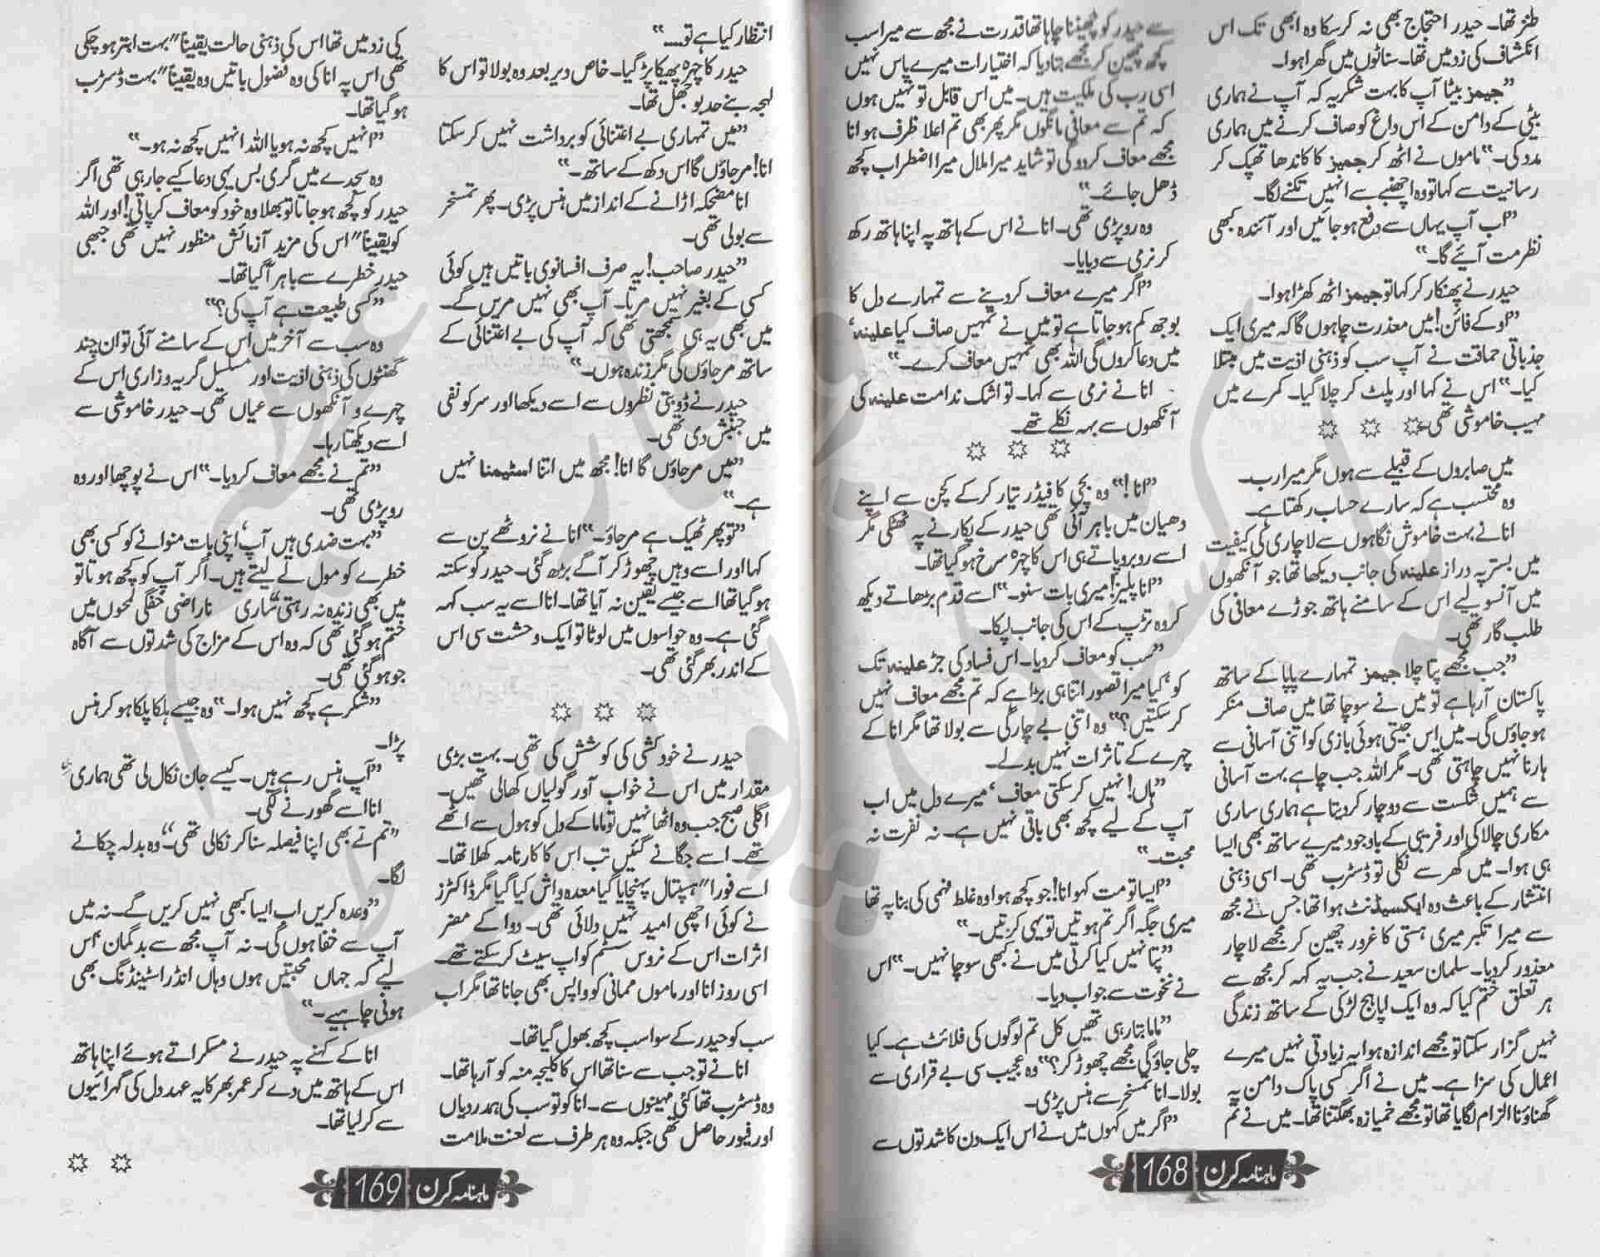 طنز تھا۔ حیدر احتجاج بھی نہ کر سکا وہ ابھی تک اس
انکشاف کی زد میں تھا۔ سناٹوں میں گھرا ہوا۔
”جیمز بیٹا آپ کا بہت شکریہ کہ آپ نے ہماری
بیٹی کے دامن کے اس داغ کو صاف کرنے میں ہماری
مدد کی۔“ ماموں نے اٹھ کر جمیز کا کاندھا تھپک کر
رسانیت سے کہا تو وہ اچنبھے سے انہیں تکنے لگا۔
”اب آپ یہاں سے دفع ہو جائیں اور آئندہ کبھی
نظر مت آئیے گا۔“
حیدر نے پھنکار کر کہا تو جیمز اٹھ کھڑا ہوا۔
”اوکے فائن! میں معذرت چاہوں گا کہ میری ایک
جذباتی حماقت نے آپ سب کو ذہنی اذیت میں مبتلا
کیا۔“ اس نے کہا اور پلٹ کر چلا گیا۔ کمرے میں
مہیب خاموشی تھی۔
میں صابروں کے قبیلے سے ہوں مگر میرا رب۔
وہ محتسب ہے کہ سارے حساب رکھتا ہے۔
انا نے بہت خاموش نگاہوں سے لاچاری کی کیفیت
میں بستر پہ دراز علینہ کی جانب دیکھا تھا جو آنکھوں
میں آنسو لیے اس کے سامنے ہاتھ جوڑے معافی کی
طلب گار تھی۔
”جب مجھے پتا چلا جیمز تمہارے پاپا کے ساتھ
پاکستان آ رہا ہے تو میں نے سوچا تھا میں صاف منکر
ہو جاؤں گی۔ میں اس جیتی ہوئی بازی کو اتنی آسانی سے
ہارنا نہیں چاہتی تھی۔ مگر اللہ جب چاہے بہت آسانی
سے ہمیں شکست سے دوچار کر دیتا ہے ہماری ساری
مکاری چالاکی اور فریبی کے باوجود میرے ساتھ بھی ایسا
ہی ہوا۔ میں گھر سے نکلی تو ڈسٹرب تھی۔ اسی ذہنی
انتشار کے باعث وہ ایکسیڈنٹ ہوا تھا جس نے مجھ
سے میرا تکبر میری ہستی کا غرور چھین کر مجھے لاچار
معذور کر دیا۔ سلمان سعید نے جب یہ کہہ کر مجھ سے
ہر تعلق ختم کیا کہ وہ ایک اپاہج لڑکی کے ساتھ زندگی
نہیں گزار سکتا تو مجھے اندازہ ہوا یہ زیادتی نہیں میرے
اعمال کی سزا ہے۔ میں نے اگر کسی پاک دامن پہ
گھناؤنا الزام لگایا تھا تو مجھے خمیازہ بھگتنا تھا۔ میں نے تم
سے حیدر کو چھیننا چاہا تھا قدرت نے مجھ سے میرا سب
کچھ چھین کر مجھے بتا دیا کہ اختیارات میرے پاس نہیں
اسی رب کی ملکیت ہیں۔ میں اس قابل تو نہیں ہوں
کہ تم سے معافی مانگوں مگر پھر بھی تم اعلا ظرف ہو انا
مجھے معاف کر دو گی تو شاید میرا ملال میرا اضطراب کچھ
ڈھل جائے۔“
وہ رو پڑی تھی۔ انا نے اس کے ہاتھ پہ اپنا ہاتھ رکھ
کر نرمی سے دبایا۔
”اگر میرے معاف کر دینے سے تمہارے دل کا
بوجھ کم ہو جاتا ہے تو میں نے تمہیں صاف کیا علینہ،
میں دعا کروں گی اللہ بھی تمہیں معاف کرے۔“
انا نے نرمی سے کہا۔ تو اشک ندامت علینہ کی
آنکھوں سے بہہ نکلے تھے۔
”انا!“ وہ بچی کا فیڈر تیار کر کے کچن سے اپنے
دھیان میں باہر آئی تھی حیدر کے پکارنے پہ ٹھٹکی مگر
اسے روبرو پاتے ہی اس کا چہرہ سرخ ہو گیا تھا۔
”انا پلیز! میری بات سنو۔“ اسے قدم بڑھاتے دیکھ
کر وہ تڑپ کے اس کی جانب لپکا۔
”سب کو معاف کر دیا۔ اس فساد کی جڑ علینہ تک
کو، کیا میرا قصور اتنا ہی بڑا ہے کہ تم مجھے معاف نہیں
کر سکتیں؟“ وہ اتنی بے چارگی سے بولا تھا مگر انا کے
چہرے کے تاثرات نہیں بدلے۔
”ہاں! نہیں کر سکتی معاف، میرے دل میں اب
آپ کے لیے کچھ بھی باقی نہیں ہے۔ نہ نفرت نہ
محبت۔“
”ایسا تو مت کہو انا! جو کچھ ہوا وہ غلط فہمی کی بنا پہ تھا
میری جگہ اگر تم ہوتیں تو یہی کرتیں۔“
”پتا نہیں کیا کرتی میں نے کبھی سوچا نہیں۔“ اس
نے نخوت سے جواب دیا۔
”ماما بتا رہی تھیں کل تم لوگوں کی فلائٹ ہے۔ کیا
چلی جاؤ گی مجھے چھوڑ کر؟“ وہ عجیب سی بے قراری سے
بولا۔ انا تمسخر سے ہنس پڑی۔
”اگر میں کہوں میں نے اس ایک دن کا شدتوں سے
ماہنامہ کرن 168
انتظار کیا ہے تو۔۔۔۔“
حیدر کا چہرہ پھیکا پڑ گیا۔ خاص دیر بعد وہ بولا تو اس کا
لہجہ بے حد بوجھل تھا۔
”میں تمہاری بے اعتنائی کو برداشت نہیں کر سکتا
انا! مر جاؤں گا اس دکھ کے ساتھ۔“
انا مضحکہ اڑانے کے انداز میں ہنس پڑی۔ پھر تمسخر
سے بولی تھی۔
”حیدر صاحب! یہ صرف افسانوی باتیں ہیں کوئی
کسی کے بغیر نہیں مرتا۔ آپ بھی نہیں مریں گے۔
میں بھی یہ ہی سمجھتی تھی کہ آپ کی بے اعتنائی کے
ساتھ مر جاؤں گی مگر زندہ ہوں۔“
حیدر نے ڈوبتی نظروں سے اسے دیکھا اور سر کو نفی
میں جنبش دی تھی۔
”میں مر جاؤں گا انا! مجھ میں اتنا اسٹیمنا نہیں
ہے۔“
”تو پھر ٹھیک ہے مر جاؤ۔“ انا نے نروٹھے پن سے
کہا اور اسے وہیں چھوڑ کر آگے بڑھ گئی۔ حیدر کو سکتہ
ہو گیا تھا اسے جیسے یقین نہ آیا تھا۔ انا اسے یہ سب کہہ
گئی ہے۔ وہ حواسوں میں لوٹا تو ایک وحشت سی اس
کے اندر بھر گئی تھی۔
حیدر نے خود کشی کی کوشش کی تھی۔ بہت بڑی
مقدار میں اس نے خواب آور گولیاں کھا لی تھیں۔
اگلی صبح جب وہ اٹھا نہیں تو ماما کے دل کو ہول سے اٹھے
تھے۔ اسے جگانے گئیں تب اس کا کارنامہ کھلا تھا۔
اسے فوراً ہسپتال پہنچایا گیا معدہ واش کیا گیا مگر ڈاکٹرز
نے کوئی اچھی امید نہیں دلائی تھی۔ دوا کے مضر
اثرات اس کے نروس سسٹم کو اپ سیٹ کر سکتے تھے۔
اسی روز انا اور ماموں ممانی کو واپس بھی جانا تھا مگر اب
سب کو حیدر کے سوا سب کچھ بھول گیا تھا۔
انا نے تو جب سے سنا تھا اس کا کلیجہ منہ کو آ رہا تھا۔
وہ ڈسٹرب تھا کئی مہینوں سے۔ انا کو تو سب کی ہمدردیاں
اور فیور حاصل تھی جبکہ وہ ہر طرف سے لعنت ملامت
کی زد میں تھا اس کی ذہنی حالت یقیناً بہت ابتر ہو چکی
تھی اس پہ انا کی وہ فضول باتیں وہ یقیناً بہت ڈسٹرب
ہو گیا تھا۔
”انہیں کچھ نہ ہو یا اللہ انہیں کچھ نہ ہو۔“
وہ سجدے میں گری بس یہی دعا کیے جا رہی تھی اگر
حیدر کو کچھ ہو جاتا تو بھلا وہ خود کو معاف کر پاتی! اور اللہ
کو یقیناً اس کی مزید آزمائش منظور نہیں تھی جبھی
حیدر خطرے سے باہر آ گیا تھا۔
”کسی طبیعت ہے آپ کی؟“
وہ سب سے آخر میں اس کے سامنے آئی تو ان چند
گھنٹوں کی ذہنی اذیت اور مسلسل گریہ و زاری اس کے
چہرے و آنکھوں سے عیاں تھی۔ حیدر خاموشی سے
اسے دیکھتا رہا۔
”تم نے مجھے معاف کر دیا۔“ اس نے پوچھا اور وہ
رو پڑی تھی۔
”بہت ضدی ہیں آپ، اپنی بات منوانے کو کسی بھی
خطرے کو مول لے لیتے ہیں۔ اگر آپ کو کچھ ہوتا تو
میں بھی زندہ نہ رہتی“ ساری ناراضی خفگی لمحوں میں
ختم ہو گئی تھی کہ وہ اس کے مزاج کی شدتوں سے آگاہ
جو ہو گئی تھی۔
”شکر ہے کچھ نہیں ہوا۔“ وہ جیسے ہلکا پلکا ہو کر ہنس
پڑا۔
”آپ ہنس رہے ہیں۔ کیسے جان نکال لی تھی ہماری“
انا اسے گھورنے لگی۔
”تم نے بھی اپنا فیصلہ سنا کر نکالی تھی۔“ وہ بدلہ چکانے
لگا۔
”وعدہ کریں اب ایسا کبھی نہیں کریں گے۔ نہ میں
آپ سے خفا ہوں گی۔ نہ آپ مجھ سے بدگمان، اس
لیے کہ جہاں محبتیں ہوں وہاں انڈراسٹینڈنگ بھی
ہونی چاہیے۔“
انا کے کہنے پہ حیدر نے مسکراتے ہوئے اپنا ہاتھ
اس کے ہاتھ میں دے کر عمر بھر کا یہ عہد دل کی گہرائیوں
سے کر لیا تھا۔
ماہنامہ کرن 169